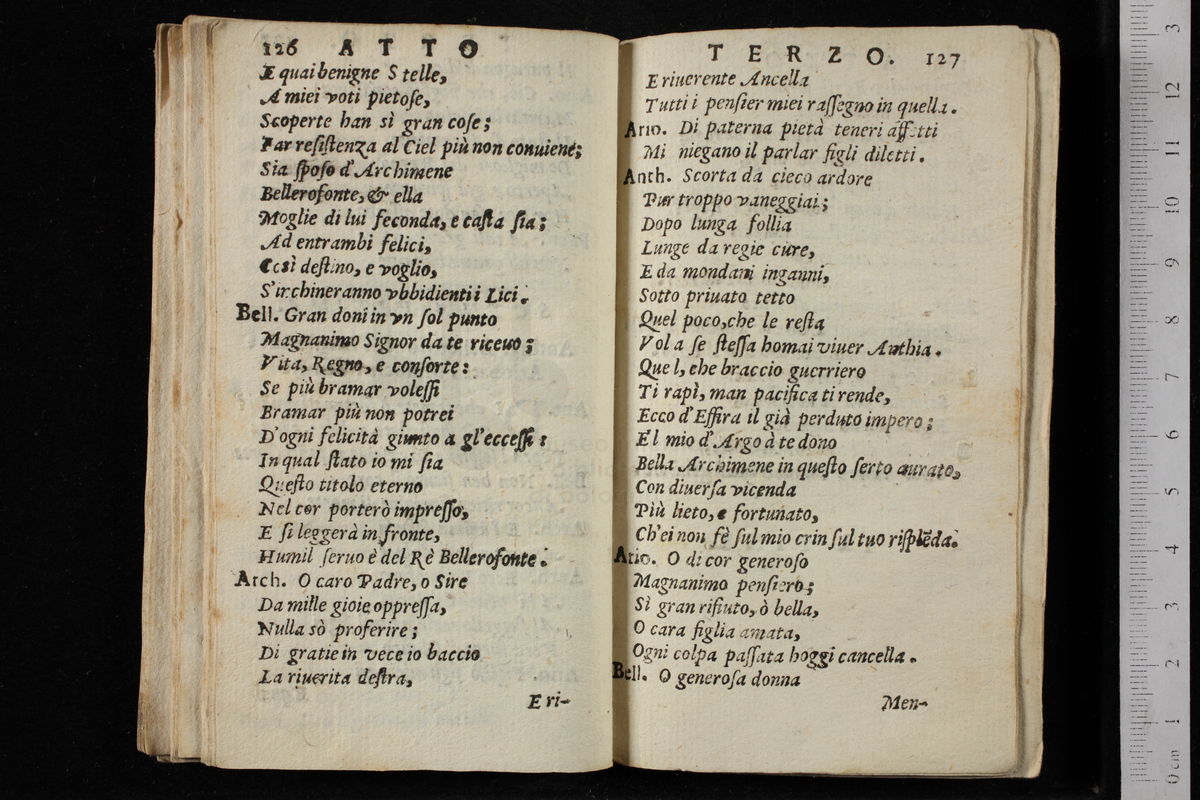 126 ATTO
E quai benigne Stelle,
A miei voti pietose,
Scoperte han sì gran cose;
Far resistenza al Ciel più non conuiene;
Sia sposo d'Archimene
Bellerofonte, & ella
Moglie di lui feconda, e casta sia;
Ad entrambi felici,
Così destino, e voglio,
S'inchineranno vbbidienti i Lici.
Bell. Gran doni in vn sol punto
Magnanimo Signor da te riceuo;
Vita, Regno, e consorte:
Se più bramar volessi
Bramar più non potrei
D'ogni felicità giunto a gl'eccessi:
In qual stato io mi sia
Questo titolo eterno
Nel cor porterò impresso,
E si leggerà in fronte,
Humil seruo è del Rè Bellerofonte.
Arch. O caro Padre, o Sire
Da mille gioie oppressa,
Nulla sò proferire;
Di gratie in vece io baccio
La riuerita destra,
E ri-
TERZO. 127
E riuerente Ancella
Tutti i pensier miei rassegno in quella.
Ario. Di paterna pietà teneri affetti
Mi niegano il parlar figli diletti.
Anth. Scorta da cieco ardore
Pur troppo vaneggiai;
Dopo lunga follia
Lunge da regie cure,
E da mondani inganni,
Sotto priuato tetto
Quel poco, che le resta
Vol a se stessa homai viuer Anthia.
Quel, che braccio guerriero
Ti rapì, man pacifica ti rende,
Ecco d'Effira il già perduto impero;
E'l mio d'Argo à te dono
Bella Archimene in questo serto aurato,
Con diuersa vicenda
Più lieto, e fortunato,
Ch'ei non fè sul mio crin sul tuo risplēda.
Ario. O di cor generoso
Magnanimo pensiero;
Sì gran rifiuto, ò bella,
O cara figlia amata,
Ogni colpa passata hoggi cancella.
Bell. O generosa donna
Men-
0 cm 1 2 3 4 5 6 7 8 9 10 11 12 13